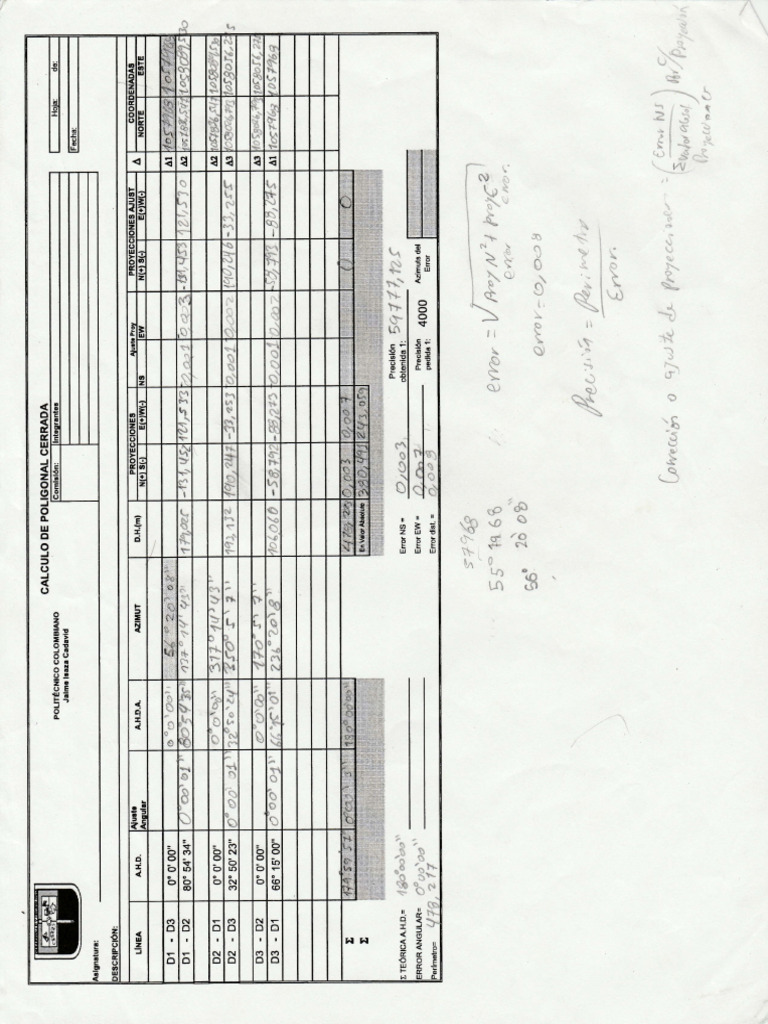 CALCULO DE POLIGONAL CERRADA
POLITÉCNICO COLOMBIANO
Jaime Isaza Cadavid
Comisión:
Integrantes
Hoja: de:
Fecha:
Asignatura:
DESCRIPCIÓN:
LÍNEA A.H.D. Ajuste Angular A.H.D.A. AZIMUT D.H.(m) PROYECCIONES N(+) S(-) E(+)W(-) Ajuste Proy NS EW PROYECCIONES AJUST N(+) S(-) E(+)W(-) Δ COORDENADAS NORTE ESTE
D1 - D3 0° 0' 00" 0° 0' 00" 56° 20' 08" Δ1 1057968 1057968
D1 - D2 80° 54' 34" 0° 00' 01" 80° 54' 35" 137° 14' 43" 179,025 -131,452 121,533 0,001 0,003 -131,453 121,530 Δ2
D2 - D1 0° 0' 00" 0° 0' 00" 317° 14' 43" Δ2
D2 - D3 32° 50' 23" 0° 00' 01" 32° 50' 24" 350° 5' 7" 193,132 190,247 -33,253 0,001 0,002 190,246 -33,255 Δ3
D3 - D2 0° 0' 00" 0° 0' 00" 170° 5' 7" Δ3
D3 - D1 66° 15' 00" 0° 00' 01" 66° 15' 01" 236° 20' 8" 106,060 -58,792 -88,273 0,001 0,002 -58,793 -88,275 Δ1 1057968
Σ 179° 59' 57" 180° 00' 00" 0,003 0,007 0 0
Σ En Valor Absoluto 380,491 243,059
Σ TEÓRICA A.H.D.= 180° 00' 00"
ERROR ANGULAR= 0° 00' 00"
Perímetro= 478,217
Error NS = 0,003
Error EW = 0,007
Error dist. = 0,008
Precisión obtenida 1: 59777,125
Precisión pedida 1: 4000
Azimuts del Error
57968
55° 19 68
56° 20' 08"
error = √ Proy N² + Proy E²
error error.
error = 0,008
Precisión = Perimetro
Error.
Corrección o ajuste de Proyecciones = (Error NS
Σ Valor absol
Proyecciones) Por c/ Proyección